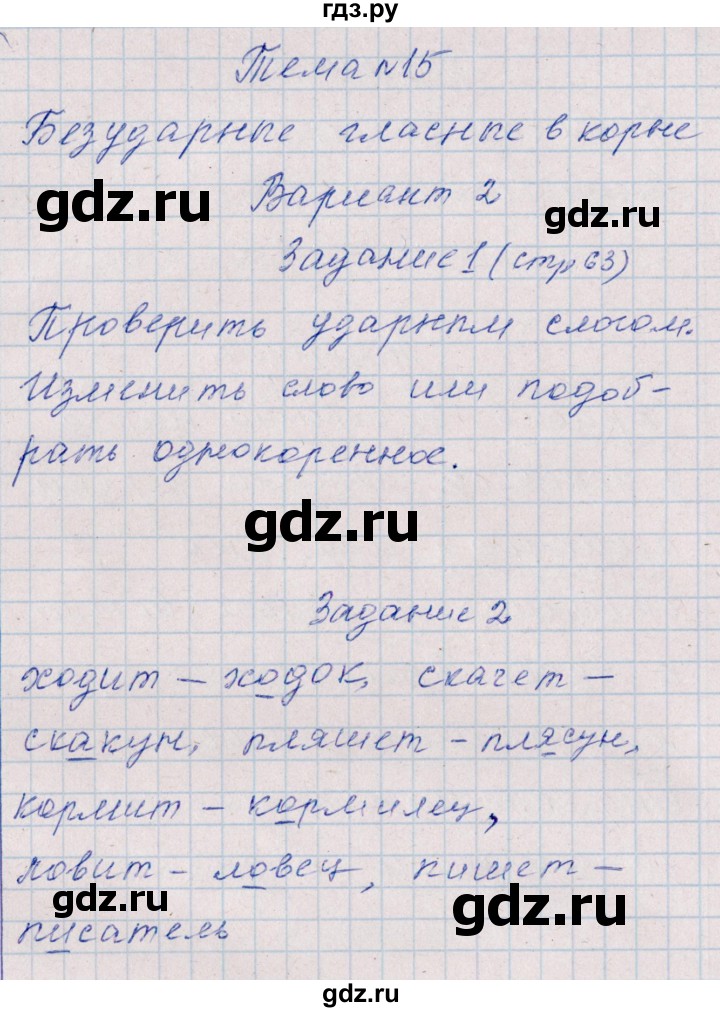 гдз.ру
Тема №15
Безударные гласные в корне
gdz.ru
Вариант 2
gdz.ru
Задание 1 (стр 63)
Проверить ударным слогом.
Изменить слово или подоб-
рать однокоренное.
gdz.ru
Задание 2
ходит – ходок, скачет –
скакун, пляшет – плясун,
кормит – кормилец,
ловит – ловец, пишет –
gdz.ru
gdz.ru
писатель
gdz.ru